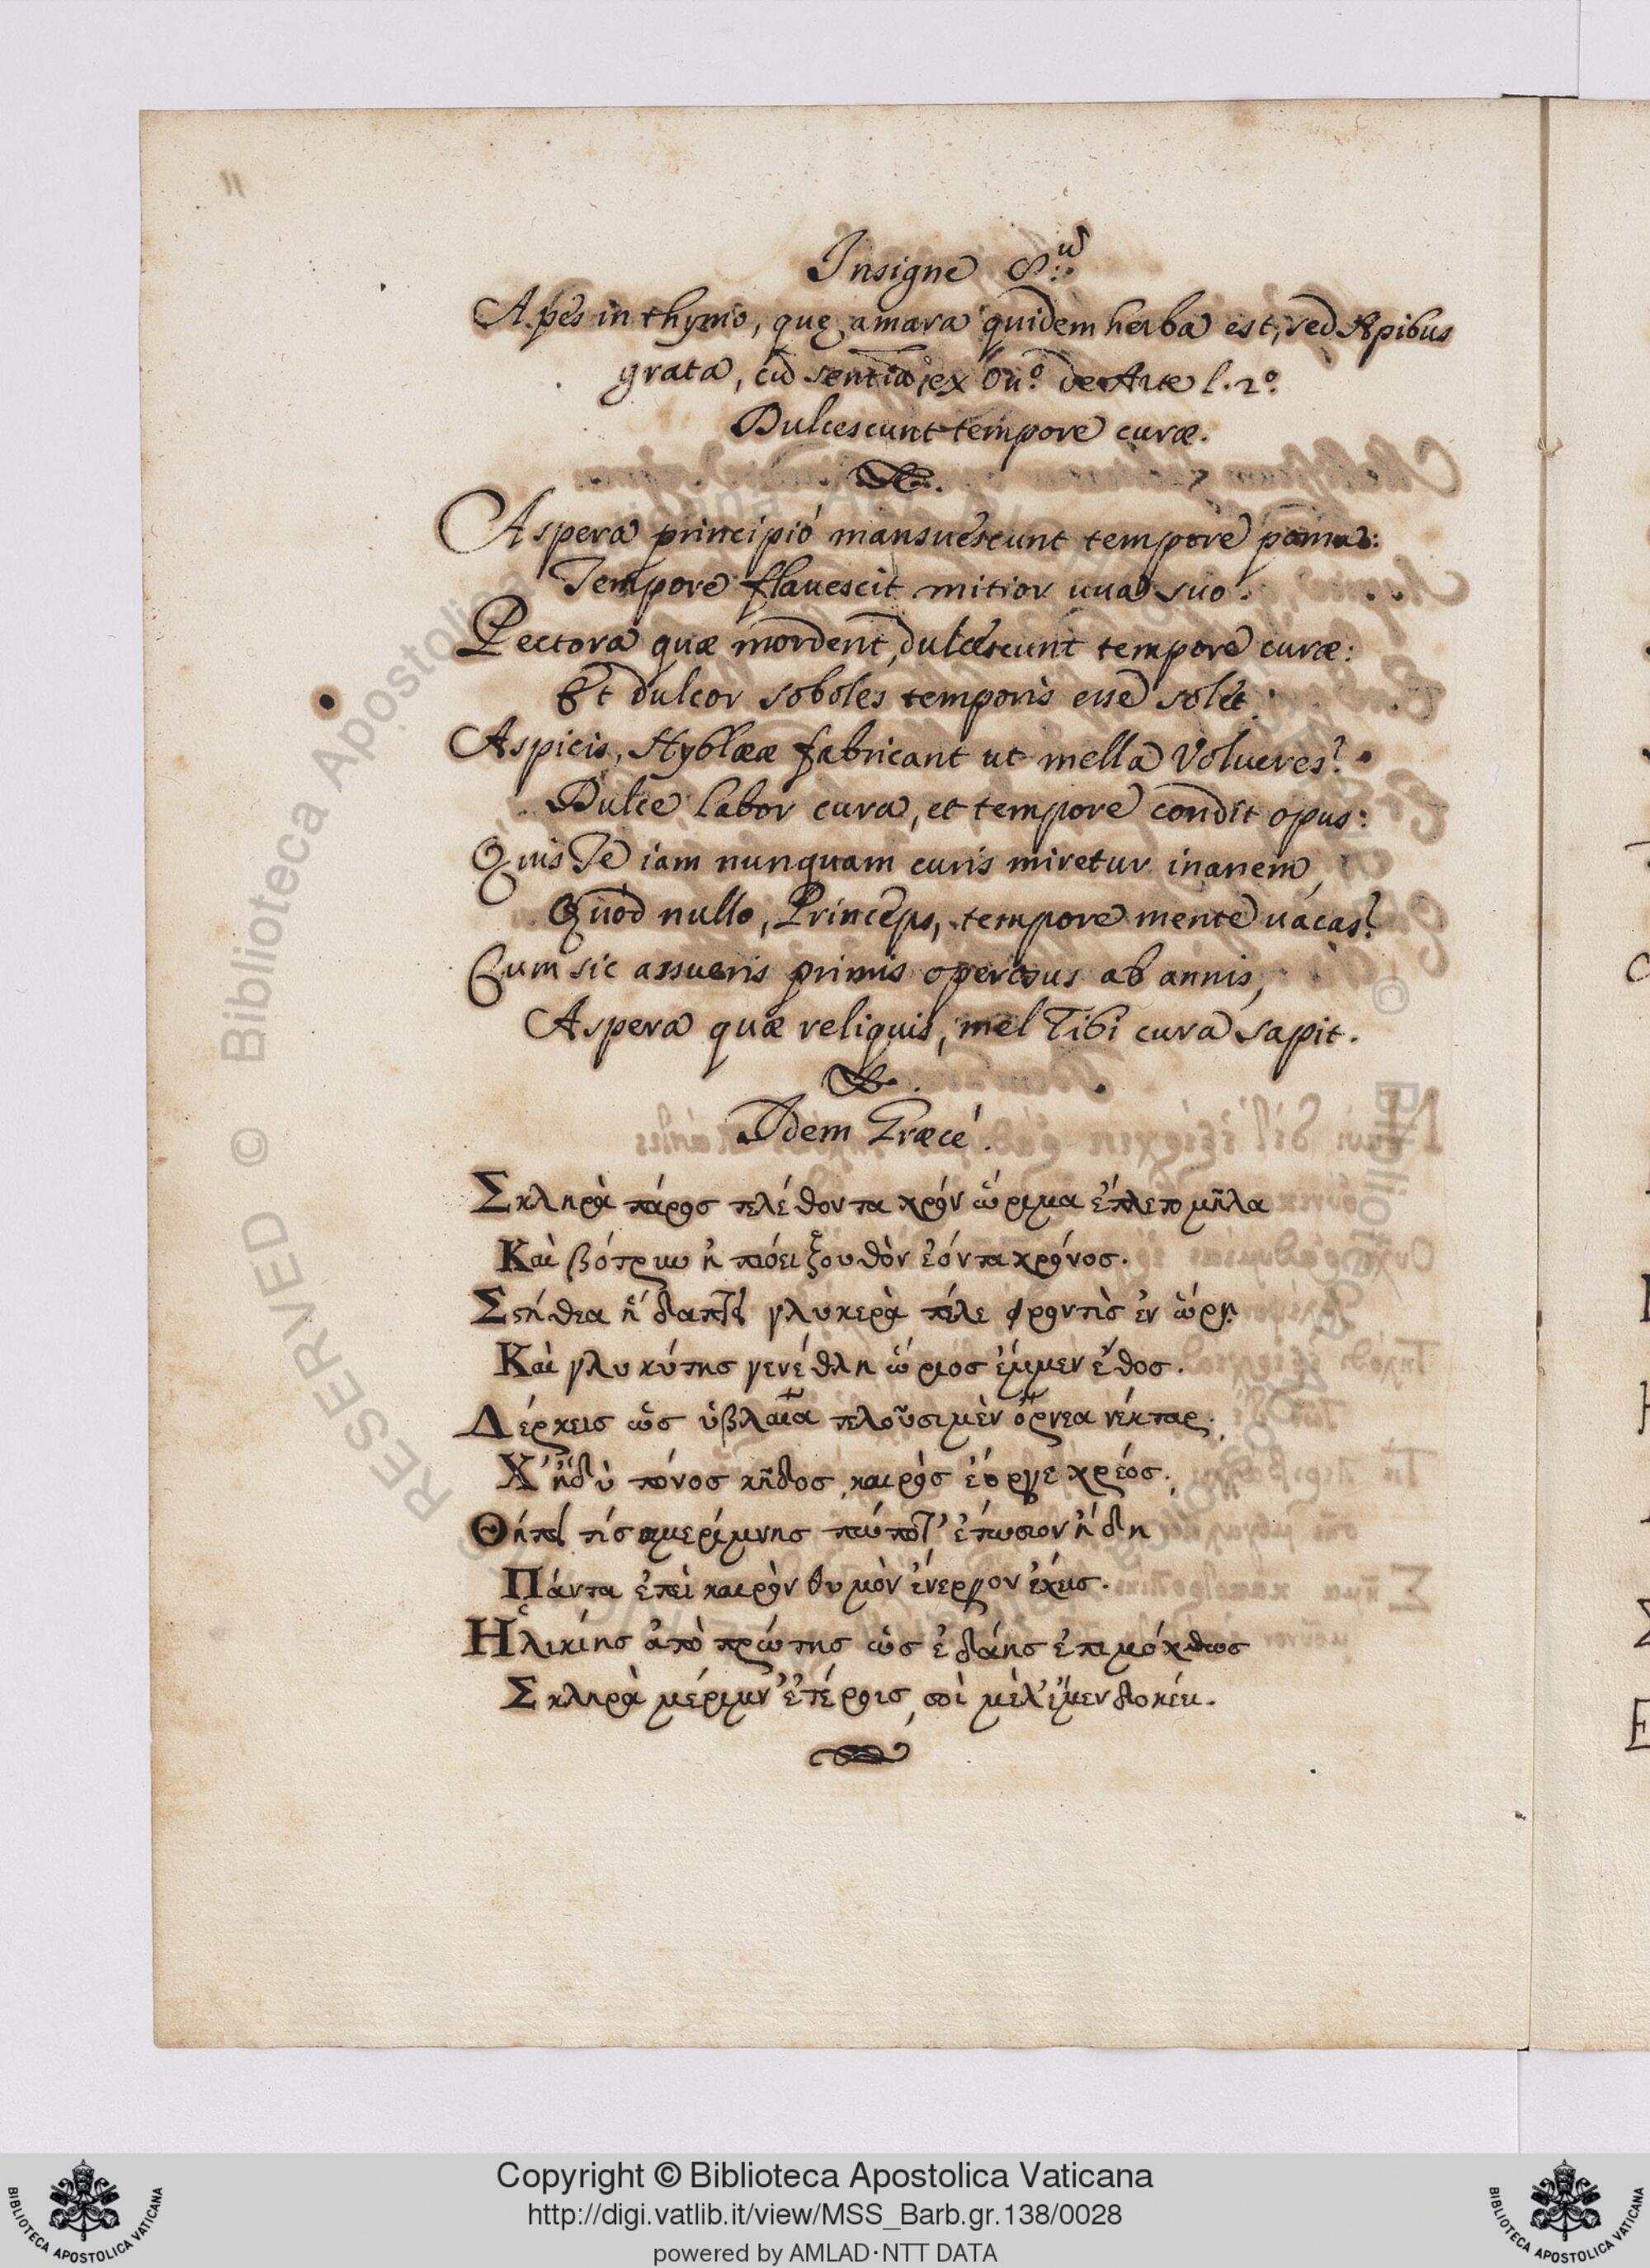 Insigne 8.um
Apes in thymo, quę amara quidem herba est, sed Apibus
grata, cũ sentẽtia ex Ou.º de Arte l. 2º
Dulcescunt tempore curæ.
Aspera principiò mansuescunt tempore poma:
Tempore flauescit mitior uua suo.
Pectora quæ mordent, dulcescunt tempore curæ:
Et dulcor soboles temporis esse solet.
Aspicis, Hyblææ fabricant ut mella Volucres?
Dulce labor cura, et tempore condit opus:
Quis Te iam nunquam curis miretur inanem,
Quòd nullo, Princeps, tempore mente uacas?
Cum sic assueris primis operosus ab annis,
Aspera quæ reliquis, mel Tibi cura sapit.
Idem Græcè.
Σκληρὰ πάρος τελέθοντα χρόν' ὥριμα ἔπλετο μῆλα
Καὶ βότρυν ἠ ποίει ξουθὸν ἐόντα χρόνος.
Στήθεα ἣ δάπτει γλυκερὰ πέλε φροντὶς ἐν ὥρῃ
Καὶ γλυκύτης γενέθλη ὥριος ἔμμεν ἔθος.
Δέρκεις ὡς ὑβλαῖα τελοῦσι μὲν ὄρνεα νέκταρ,
Χ' ἡδὺ πόνος κῆδος, καιρὸς ἔοργε χρέος.
Θήπει τίς αμερίμνης πώποτ' ἐτώσιον ἤδη
Πάντα ἐπεὶ καιρὸν θυμὸν ἐνεργὸν ἔχεις.
Ἡλικίης ἀπὸ πρώτης ὡς ἐδάης ἐπιμόχθως
Σκληρὰ μέριμν' ἑτέροις, σοὶ μὲλ' ἔμεν δοκέει.
Copyright © Biblioteca Apostolica Vaticana
http://digi.vatlib.it/view/MSS_Barb.gr.138/0028
powered by AMLAD·NTT DATA
BIBLIOTECA APOSTOLICA VATICANA
BIBLIOTECA APOSTOLICA VATICANA